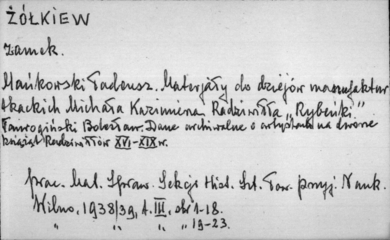 ŻÓŁKIEW
zamek.
Mańkowski Tadeusz. Materjały do dziejów manufaktur
tkackich Michała Kazimierza Radziwiłła „Rybeńki."
Taurogiński Bolesław. Dane archiwalne o artystach na dworze
książąt Radziwiłłów XVI-XIX w.
Prac. Mat. Spraw. Sekcji Hist. Szt. Tow. Przyj. Nauk.
Wilno, 1938/39, t. III, str 1-18.
" " " " 19-23.